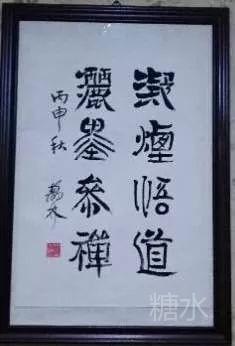 喫煙悟道
灑墨參禪
丙申秋
糖水